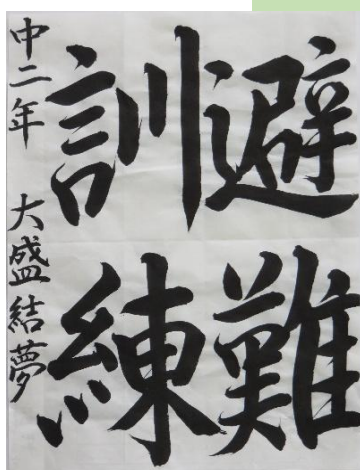 避難
訓練
中二年 大盛結夢